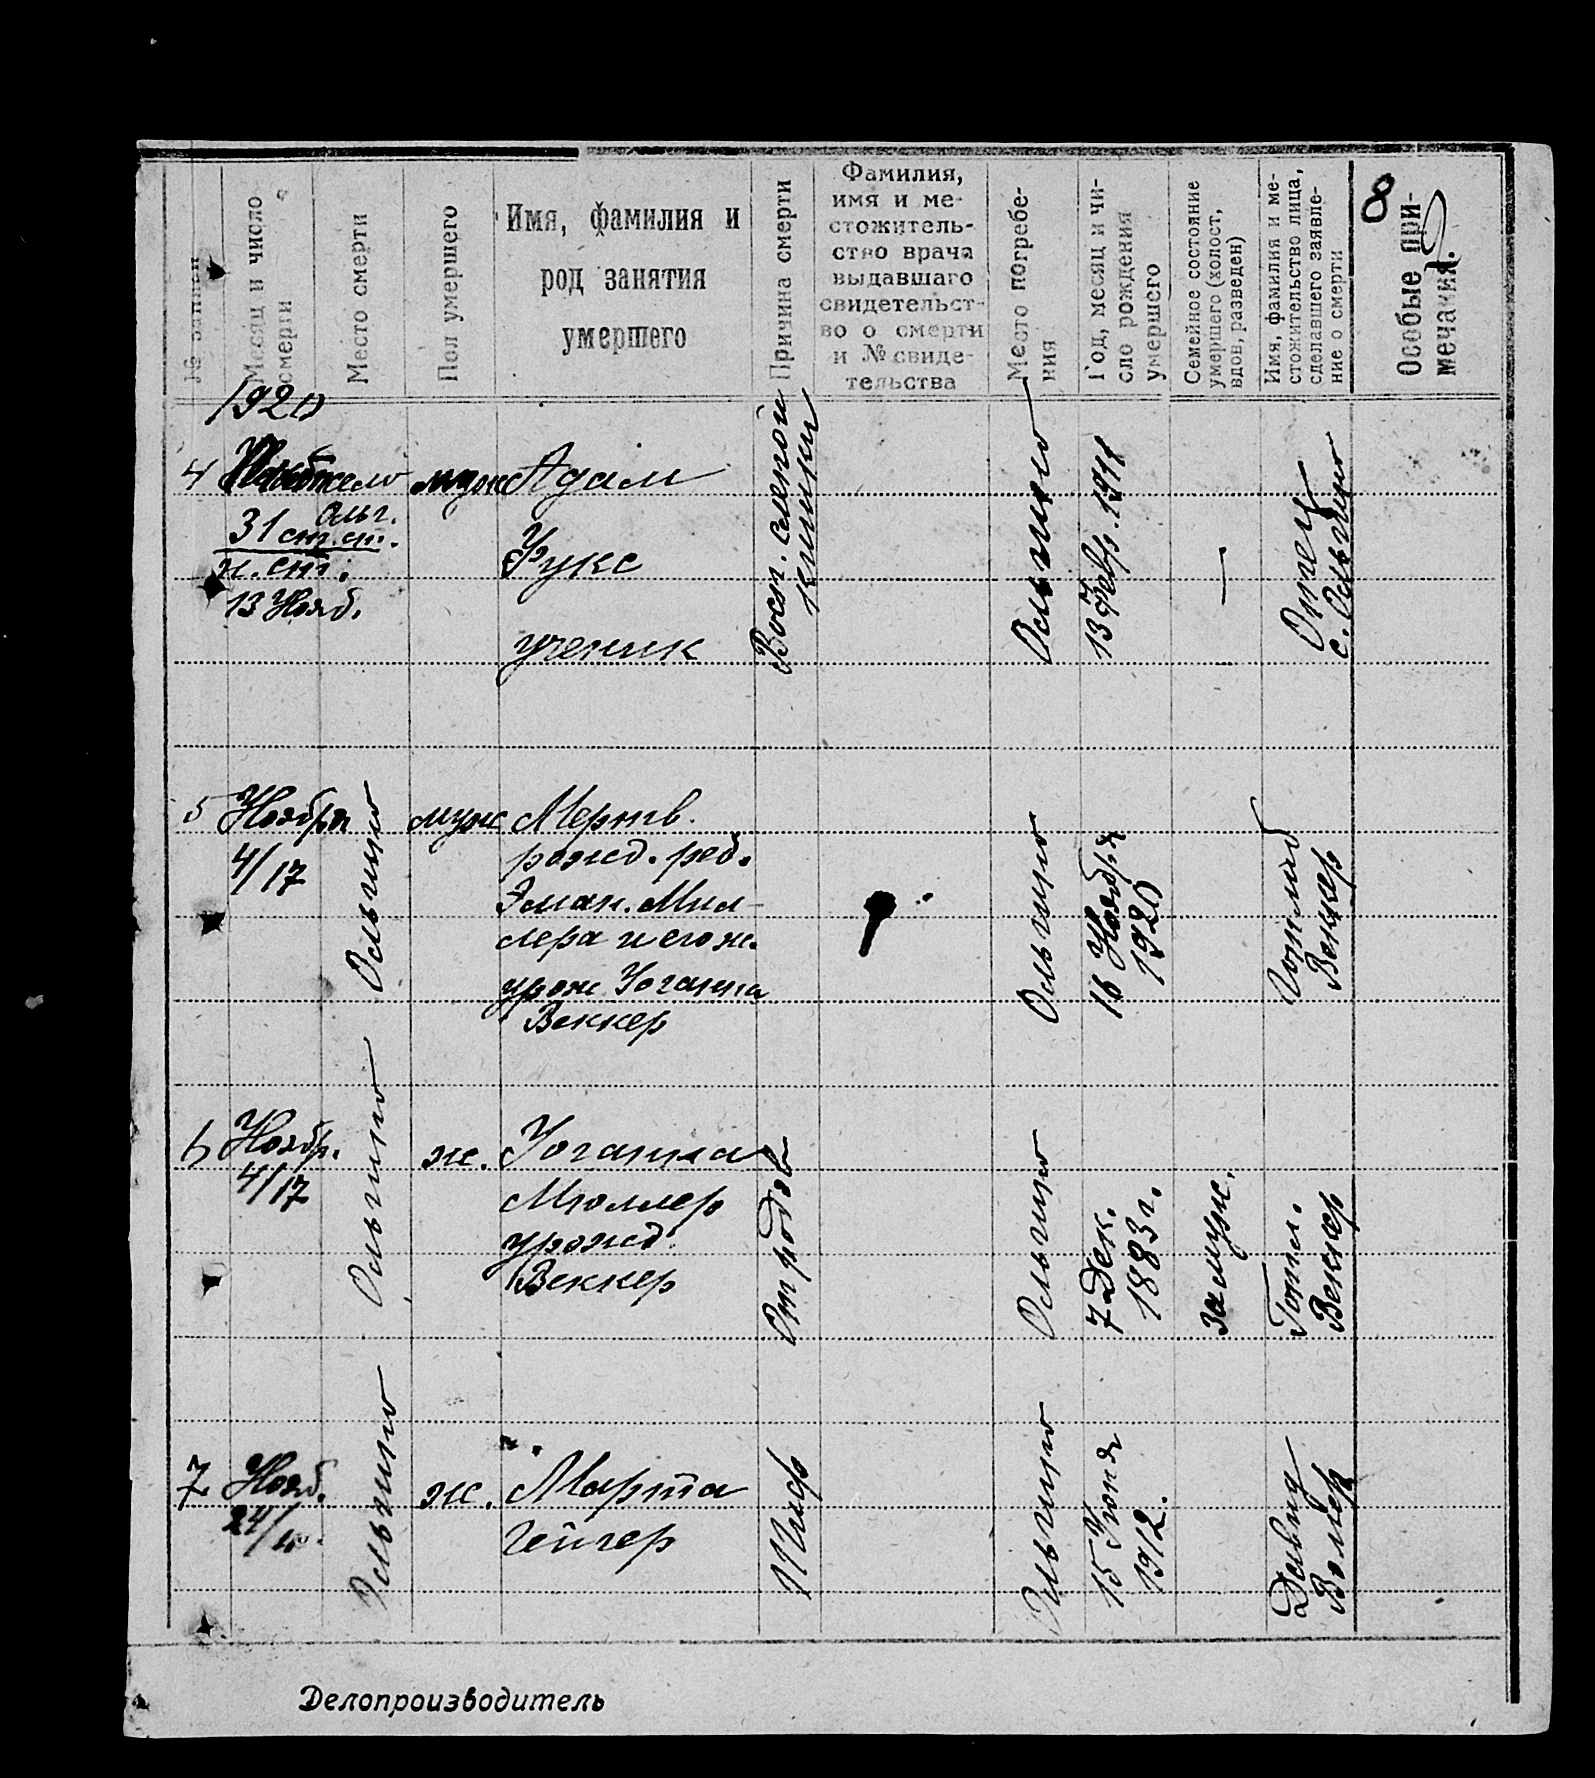 8
№ записи
Месяц и число
смерти
Место смерти
Пол умершего
Имя, фамилия и
род занятия
умершего
Причина смерти
Фамилия,
имя и ме-
стожитель-
ство врача
выдавшаго
свидетельст-
во о смерти
и № свиде-
тельства
Место погребе-
ния
Год, месяц и чи-
сло рождения
умершего
Семейное состояние
умершего (холост,
вдов, разведен)
Имя, фамилия и ме-
стожительство лица,
сделавшего заявле-
ние о смерти
Особые при-
мечания.
1920
4
31 ст. ст.
н. ст.
13 Нояб.
муж
Адам
Фукс
ученик
Восп. слепой
кишки
Ольгино
13 Февр. 1911
—
Отец
с. Ольгино
5
Ноября
4/17
Ольгино
муж
Мертв.
рожд. реб.
Эман. Мил-
лера и его ж.
урож. Иоганна
Веккер
Ольгино
16 Ноября
1920
Готлиб
Веккер
6
Ноябр.
4/17
Ольгино
ж.
Иоганна
Мюллер
урожд.
Веккер
От родов
Ольгино
7 Дек.
1883 г.
замуж.
Готл.
Веккер
7
Нояб.
24/
Ольгино
ж.
Марта
Гейгер
Тиф
Ольгино
15 Июня
1912.
Давид
Делопроизводитель